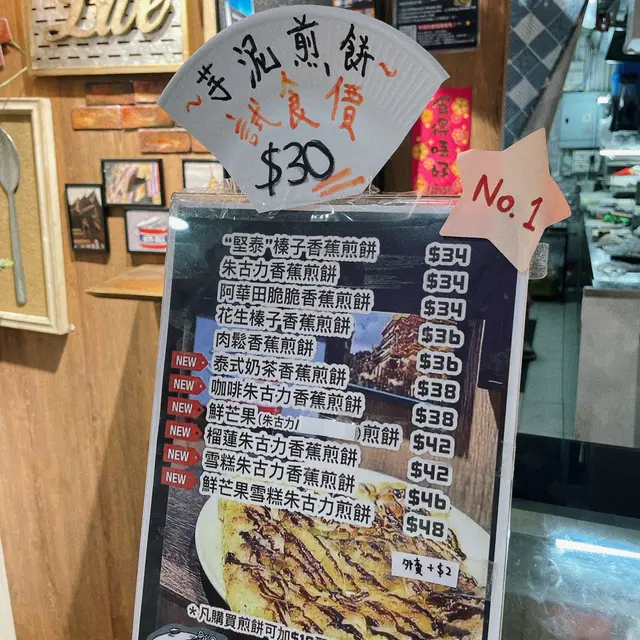 Live
芋泥煎餅
試食價
$30
No.1
"堅泰"榛子香蕉煎餅 $34
朱古力香蕉煎餅 $34
阿華田脆脆香蕉煎餅 $34
花生榛子香蕉煎餅 $36
肉鬆香蕉煎餅 $36
NEW 泰式奶茶香蕉煎餅 $38
NEW 咖啡朱古力香蕉煎餅 $38
NEW 鮮芒果(朱古力/ )煎餅 $42
NEW 榴蓮朱古力香蕉煎餅 $42
NEW 雪糕朱古力香蕉煎餅 $46
NEW 鮮芒果雪糕朱古力煎餅 $48
外賣+$2
*凡購買煎餅可加$1